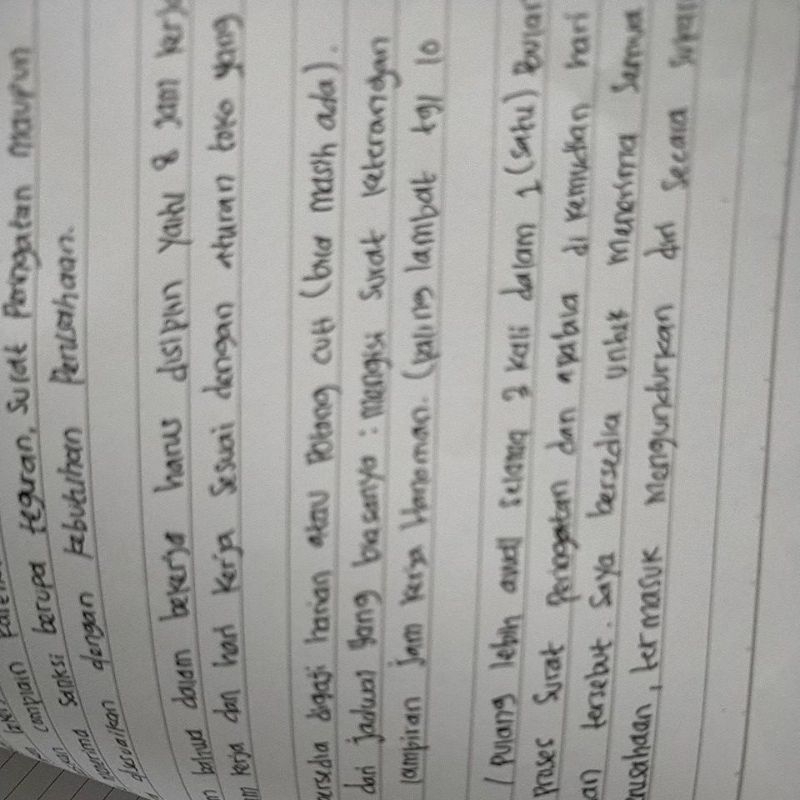 complain
sanksi berupa teguran, Surat Peringatan maupun
disesuaikan dengan kebutuhan Perusahaan.
bahwa dalam bekerja harus disiplin yaitu 8 jam kerja
kerja dan hari kerja sesuai dengan aturan toko yang
bersedia digaji harian atau Potong cuti (bila masih ada).
dari jadwal yang biasanya : mengisi surat keterangan
lampiran jam kerja Hanoman. (paling lambat tgl 10
/ pulang lebih awal selama 3 kali dalam 1 (satu) Bulan
proses Surat Peringatan dan apabila di kemudian hari
an tersebut. Saya bersedia untuk menerima semua
rusahaan, termasuk mengundurkan diri secara